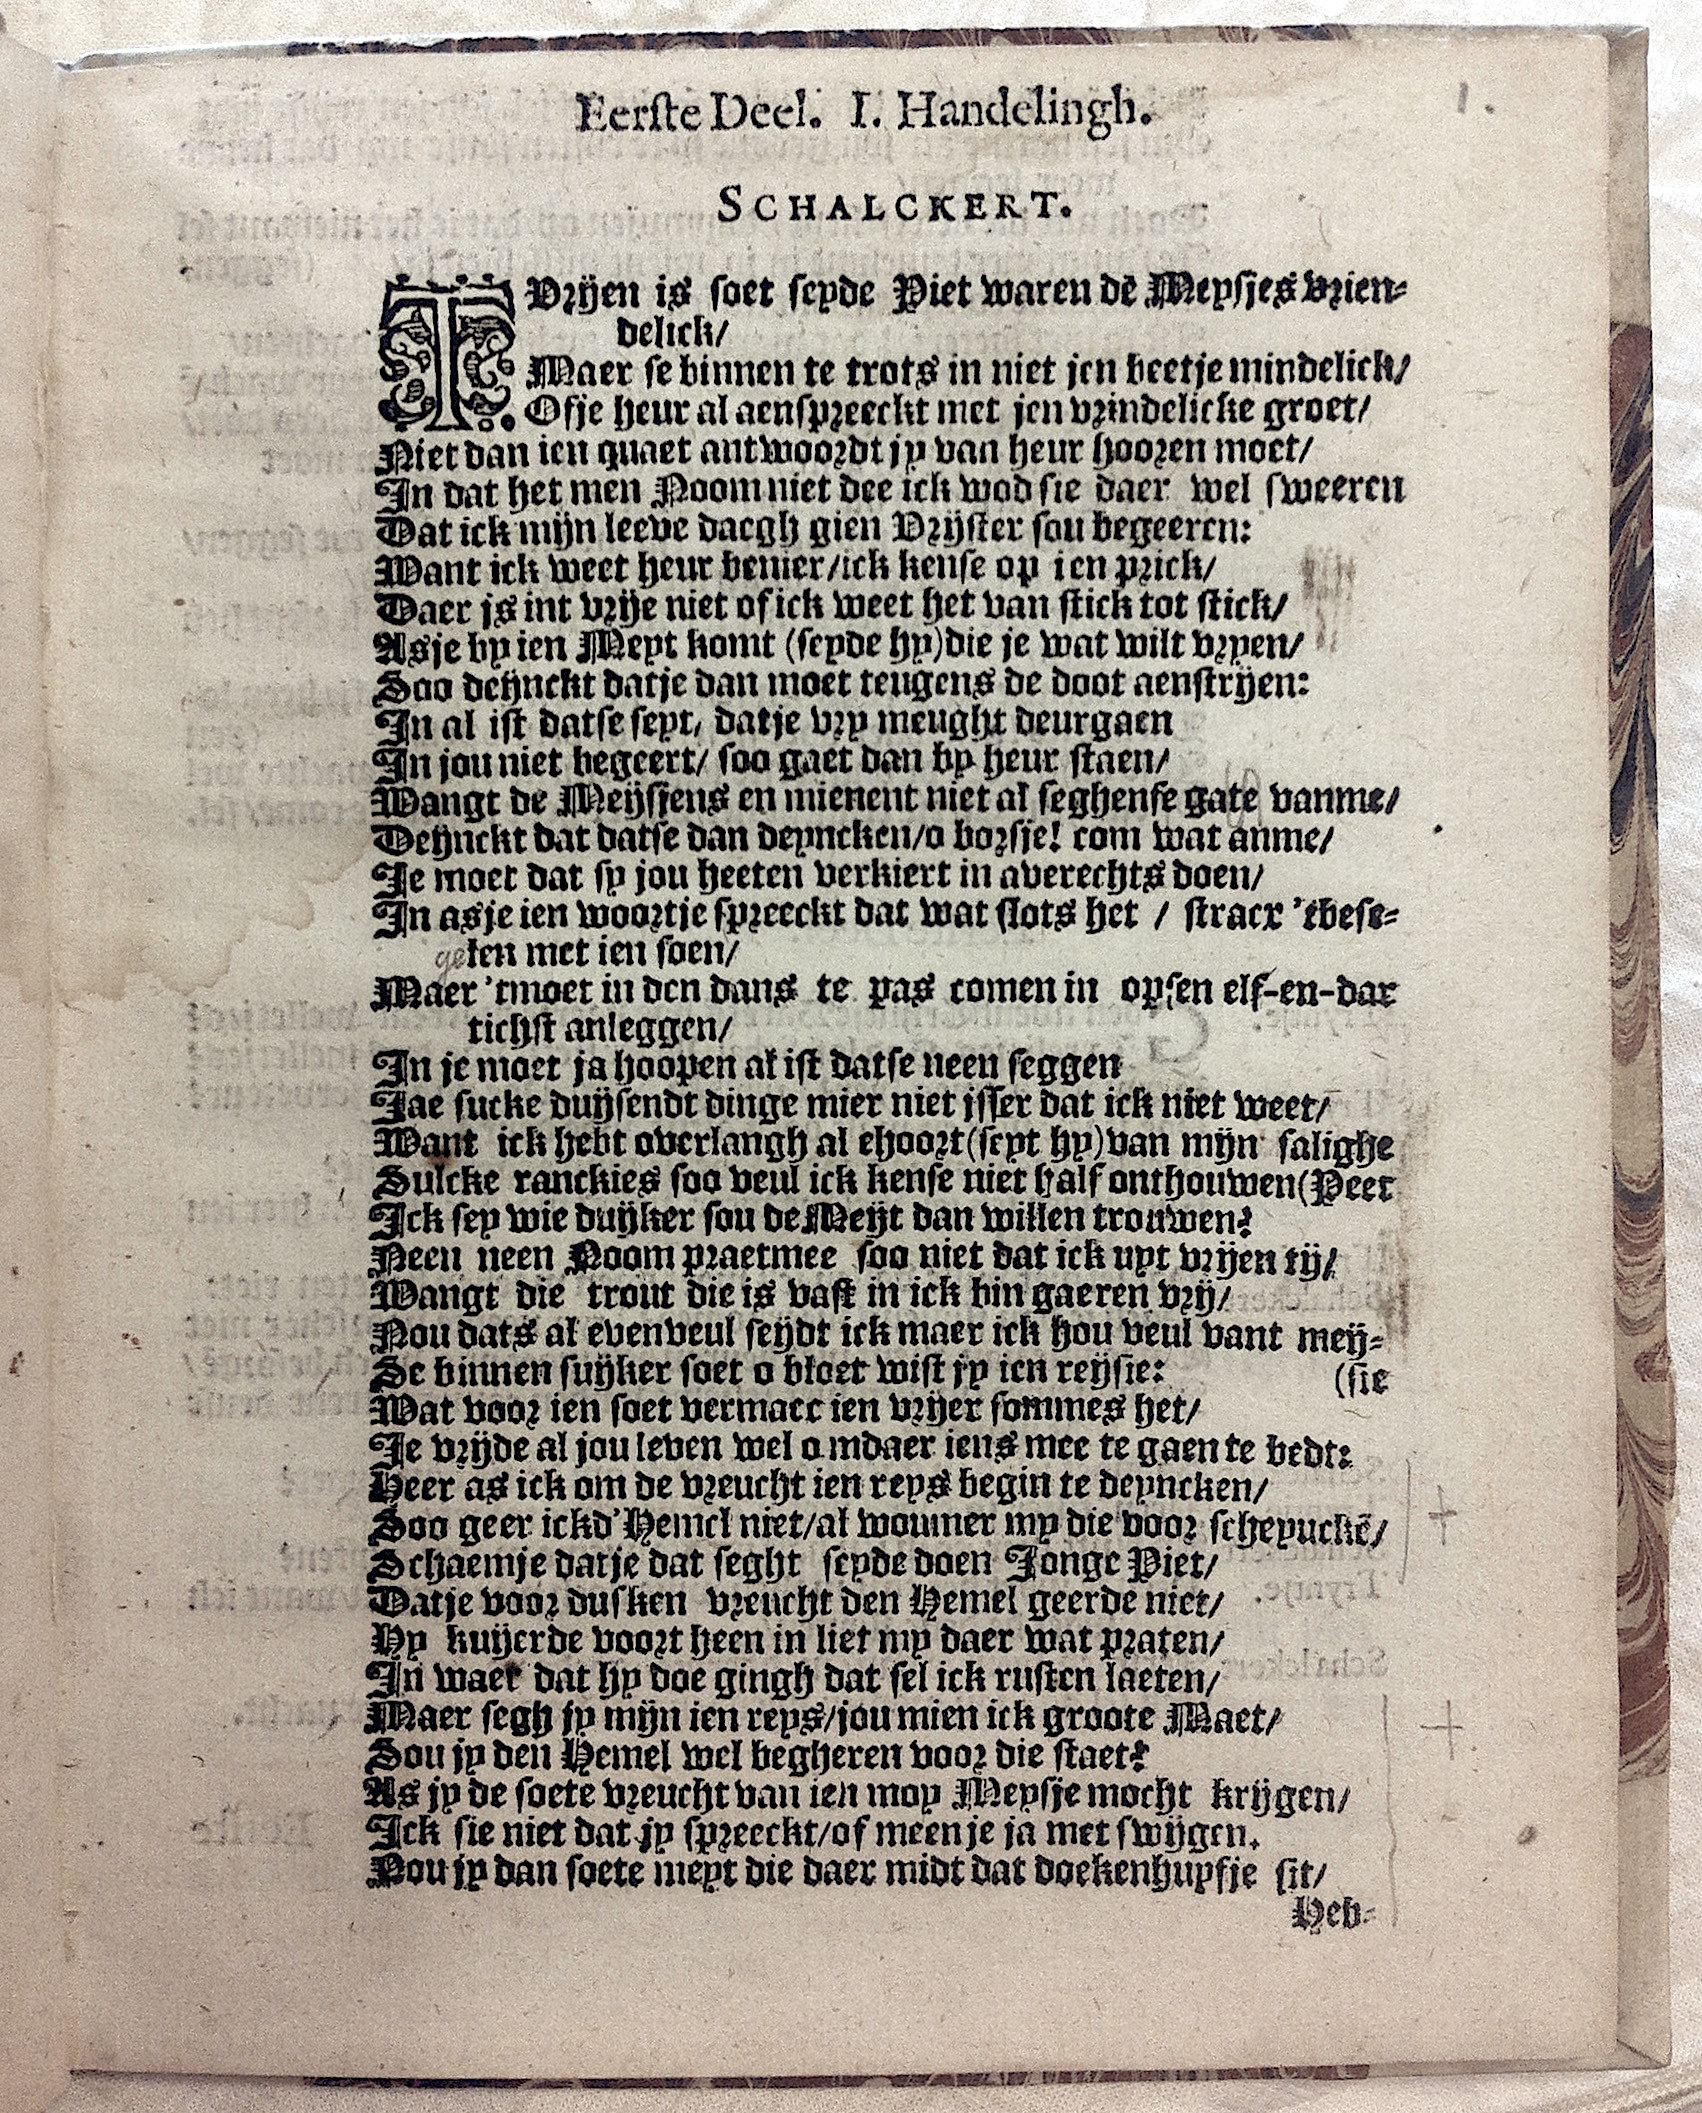 Eerſte Deel. I. Handelingh.
1.
SCHALCKERT.
T Vrijen is ſoet ſeyde Piet waren dē Meyſjes vrien-
delick/
Maer ſe binnen te trots in niet jen beetje mindelick/
Ofje heur al aenſpreeckt met jen vrindelicke groet/
Niet dan ien quaet antwoordt jy van heur hooren moet/
In dat het men Noom niet dee ick wod ſie daer wel ſweeren
Dat ick mijn leeve daegh gien Vrijſter ſou begeeren:
Want ick weet heur benier/ick kenſe op ien prick/
Daer js int vrije niet of ick weet het van ſtick tot ſtick/
Asje by ien Meyt komt (ſeyde hy) die je wat wilt vryen/
Soo deijnckt datje dan moet teugens de doot aenſtrijen:
In al iſt datſe ſeyt, datje vry meught deurgaen
In jou niet begeert/ ſoo gaet dan by heur ſtaen/
Wangt de Meijſjens en mienent niet al ſeghenſe gate vanme/
Deijnckt dat datſe dan deyncken/o borſje! com wat anme/
Je moet dat ſy jou heeten verkiert in averechts doen/
In asje ien woortje ſpreeckt dat wat ſlots het / ſtracx 'tbeſe-
gelen met ien ſoen/
Maer 'tmoet in den dans te pas comen in opſen elf-en-dar
tichſt anleggen/
In je moet ja hoopen al iſt datſe neen ſeggen
Jae ſucke duijſendt dinge mier niet jſſer dat ick niet weet/
Want ick hebt overlangh al ehoort (ſeyt hy) van mijn ſalighe
Sulcke ranckies ſoo veul ick kenſe niet half onthouwen (Peet
Ick ſey wie duijker ſou de Meijt dan willen trouwen?
Neen neen Noom praetmee ſoo niet dat ick uyt vrijen tij/
Wangt die trout die is vaſt in ick bin gaeren vrij/
Nou dats al evenveul ſeijdt ick maer ick hou veul vant meij-
Se binnen ſuijker ſoet o bloet wiſt jy ien reijſie: (ſie
Wat voor ien ſoet vermaec ien vrijer ſommes het/
Je vrijde al jou leven wel omdaer iens mee te gaen te bedt:
Heer as ick om de vreucht ien reys begin te deyncken/
Soo geer ickd' Hemel niet/al wouwer my die voor ſcheyuckē/
Schaemje datje dat ſeght ſeyde doen Jonge Piet/
Datje voor dusken vreucht den Hemel geerde niet/
Hy kuijerde voort heen in liet my daer wat praten/
In waer dat hy doe gingh dat ſel ick ruſten laeten/
Maer ſegh jy mijn ien reys/jou mien ick groote Maet/
Sou jy den Hemel wel begheren voor die ſtaet?
As jy de ſoete vreucht van ien moy Meyſje mocht krijgen/
Ick ſie niet dat jy ſpreeckt/of meenje ja met ſwijgen.
Nou jy dan ſoete meyt die daer midt dat doekenhuyfje ſit/
Heb-